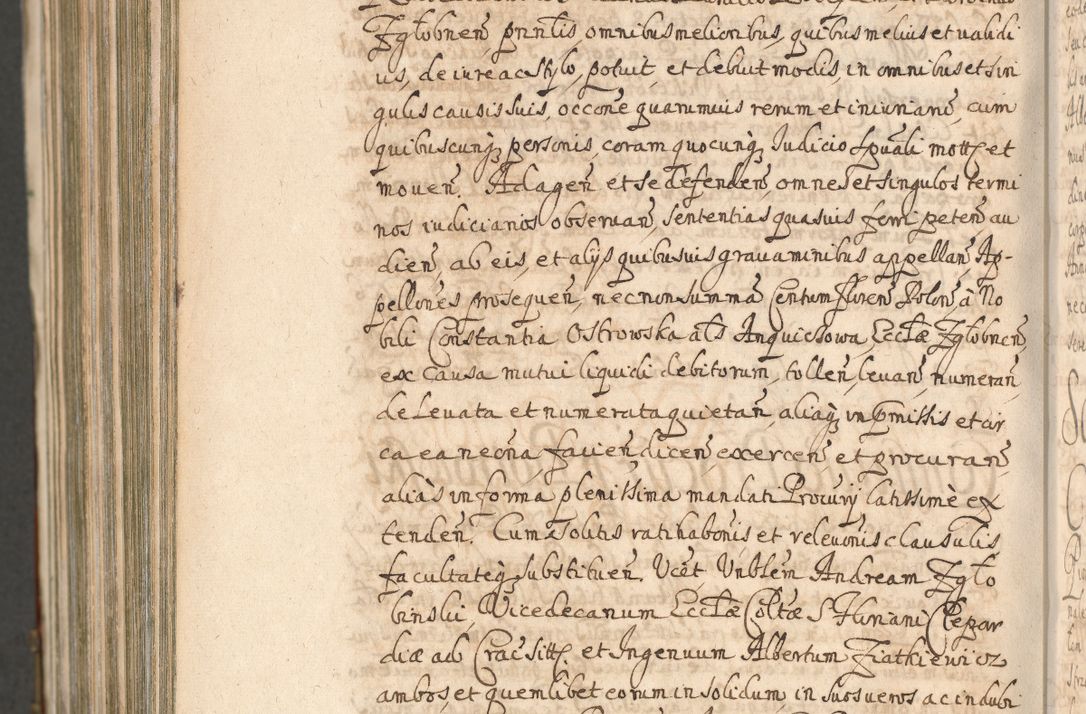 Zgłobnen̄, pnn̄lis omnibus melioribus, quibus melius et validi
us, de iure ac stylo, potuit et debuit modis, in omnibus et sin
gulis causis suis, occōne quarumvis rerum et iniuriarū, cum
quibuscunq; personis, coram quocunq; Iudicio spūali mott; et
moven̄. Ad agen̄ et se defenden̄, omnes et singulos termi
nos iudiciarios observan̄, sententias quasvis ferri peten̄, au
dien̄, ab eis, et alys quibusvis gravaminibus appellan̄, Ap-
pellōnes prosequen̄, nec non summā Centum Floren̄ Polon̄ à No
bili Constantia Ostrowska alt̄s Anquiczowa, Eccl̄æ Zgłobnen̄,
ex Causa mutui liquidi debitorum, tollen̄, levan̄, numeran̄,
de Levata et numerata quietan̄, aliaq; in p̄missis et cir
ca ea necōna, facien̄, dicen̄, exercen̄, et procuran̄,
aliàs in forma plenissima mandati Procurÿ latissimè ex
tenden̄. Cum solitis ratihabōnis et relevōnis clausulis
facultateq; substituen̄. Vcēt Vnblēm Andream Zgło
binski, Vicedecanum Eccl̄æ Colt̄æ S Floriani Clepar
diæ ad Crac̄ sitt; et Ingenuum Albertum Ziatkiewicz
ambos, et quemlibet eorum in solidum, in suos veros ac indubi